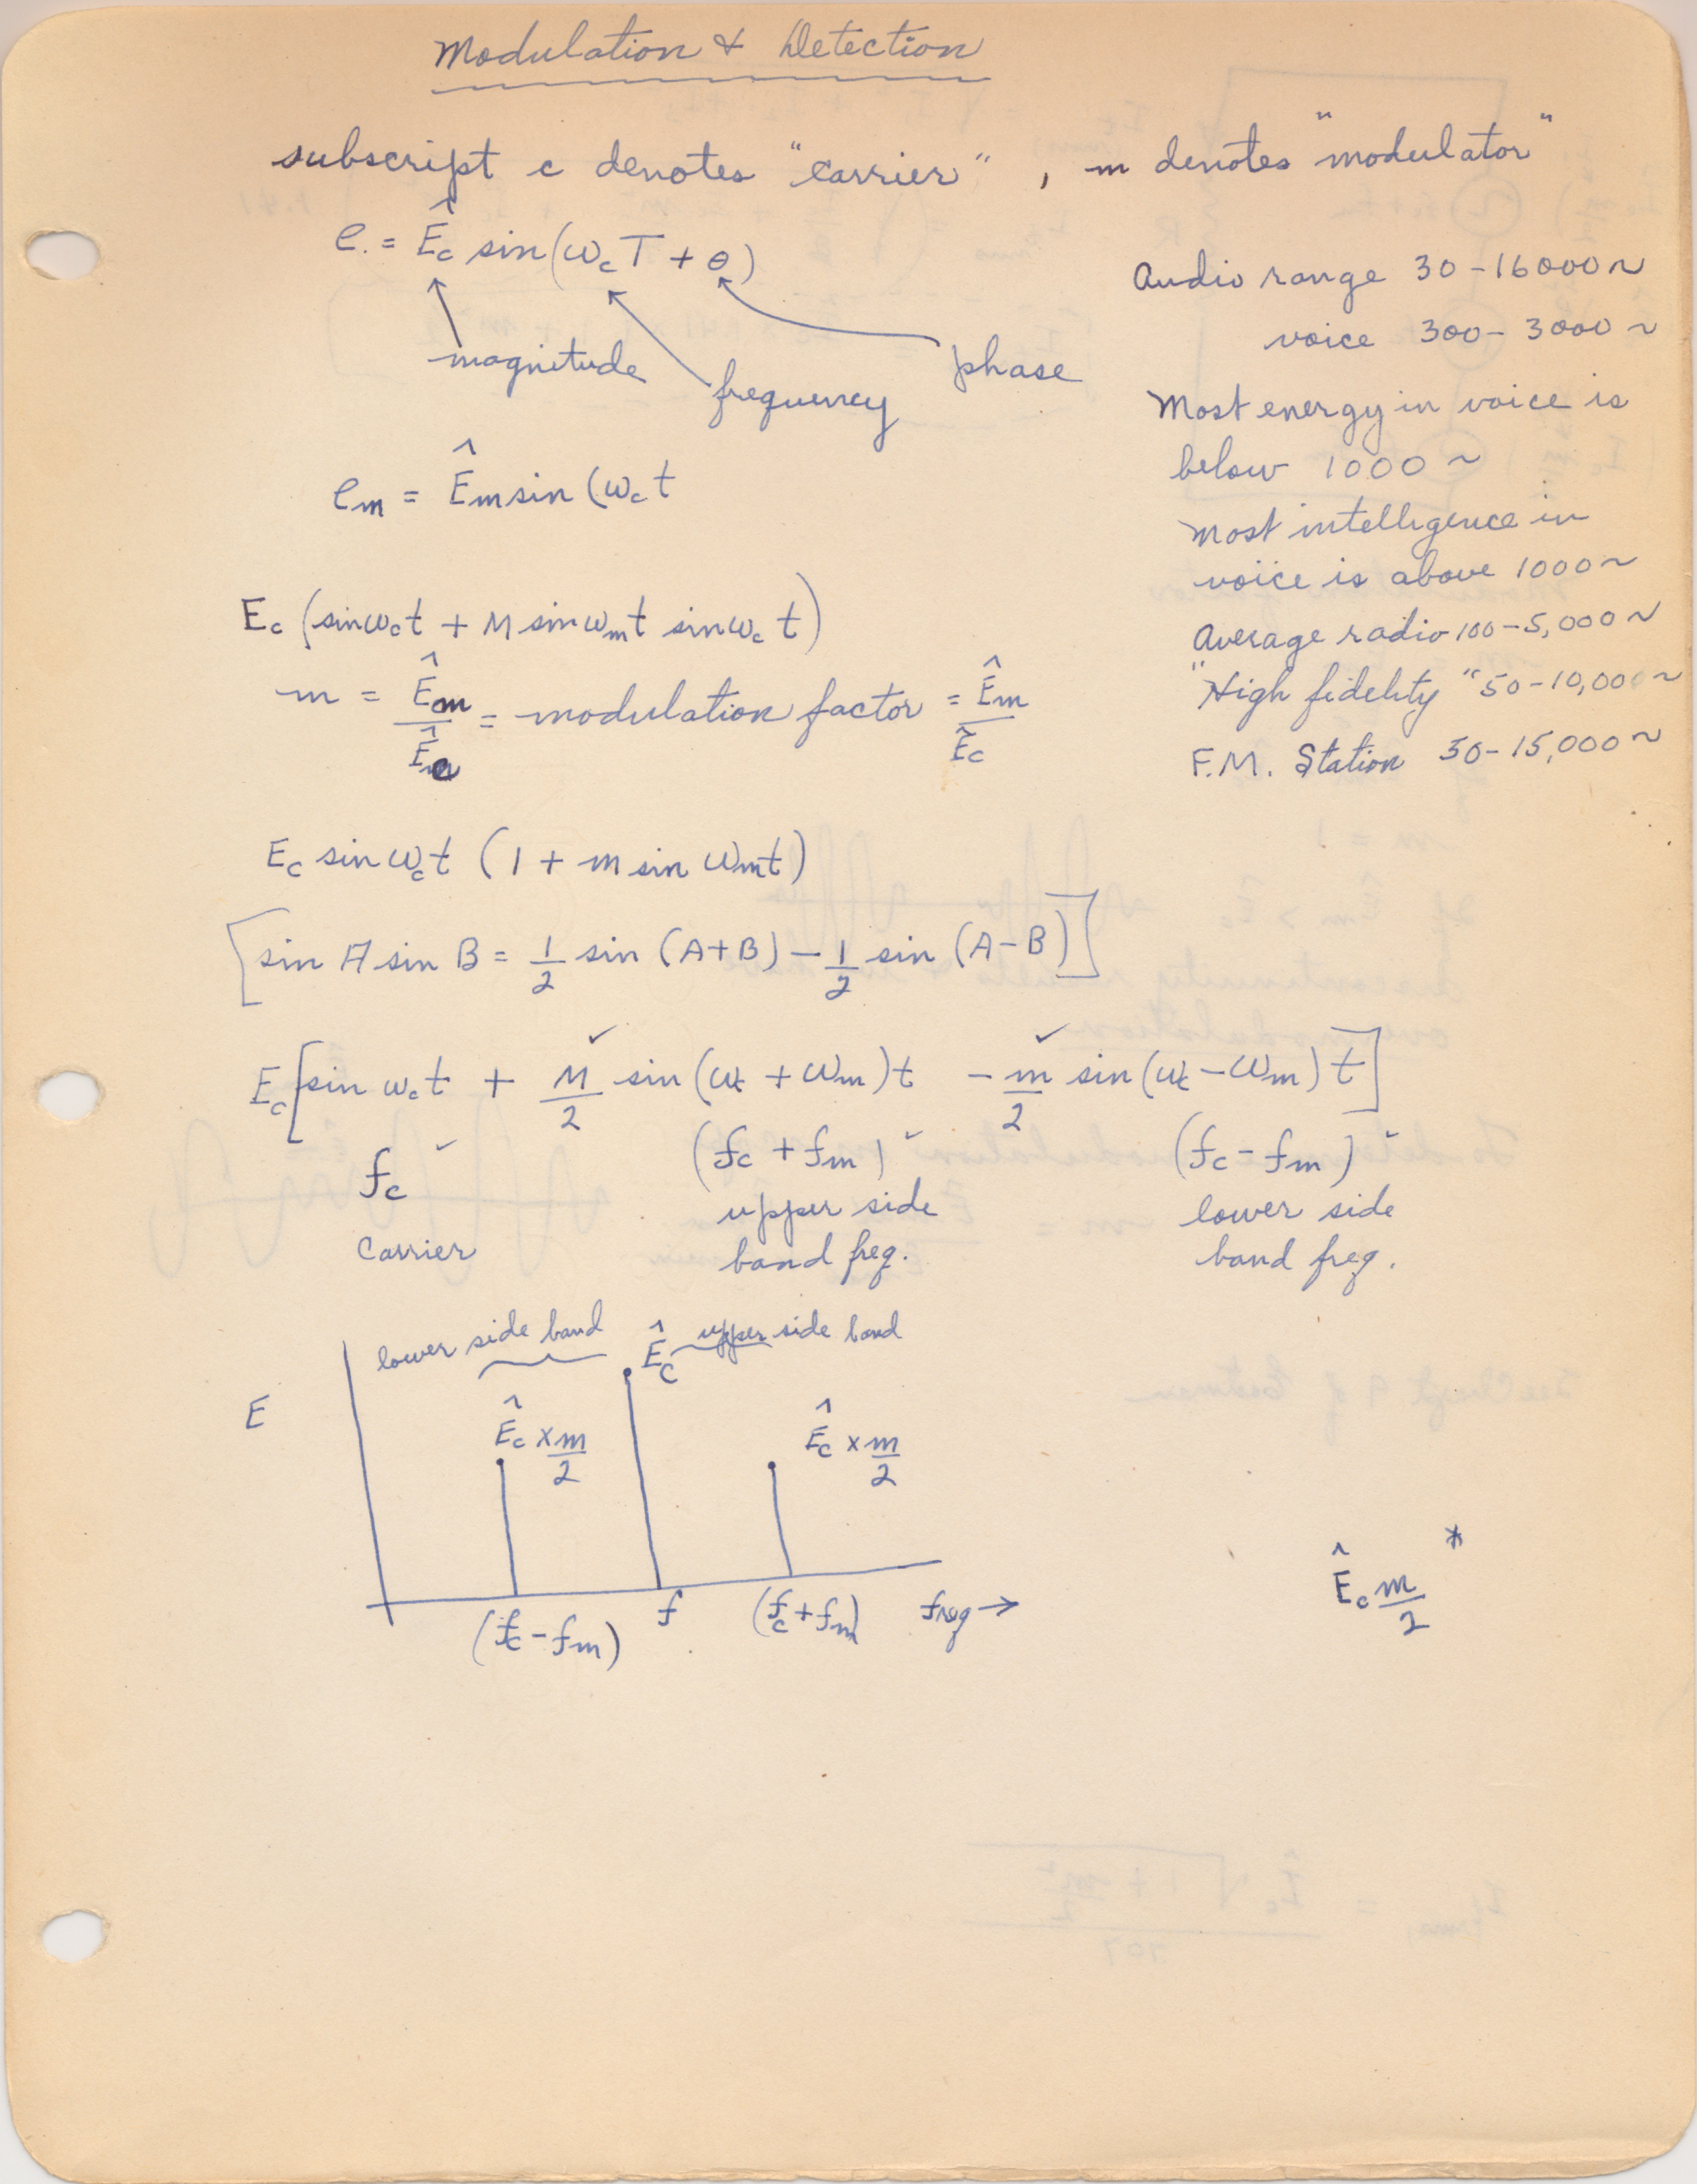 Modulation & Detection
subscript c denotes "carrier" , m denotes "modulator"
e. = Ê_c sin(ω_c T + θ)
magnitude
frequency
phase
e_m = Ê_m sin (ω_c t
Audio range 30-16000~
voice 300-3000~
Most energy in voice is
below 1000~
Most intelligence in
voice is above 1000~
Average radio 100-5,000~
"High fidelity" 50-10,000~
F.M. Station 50-15,000~
E_c (sin ω_c t + M sin ω_m t sin ω_c t)
m = Ê_m / Ê_c = modulation factor = Ê_m / Ê_c
E_c sin ω_c t (1 + m sin ω_m t)
[sin A sin B = 1/2 sin (A+B) - 1/2 sin (A-B)]
E_c [sin ω_c t + M/2 sin (ω_c + ω_m) t - m/2 sin (ω_c - ω_m) t]
f_c ✓ (f_c + f_m) ✓ (f_c - f_m) ✓
carrier upper side lower side
band freq. band freq.
lower side band Ê_c upper side band
E
Ê_c x m/2 Ê_c x m/2
(f_c - f_m) f (f_c + f_m) freq →
Ê_c m/2 *